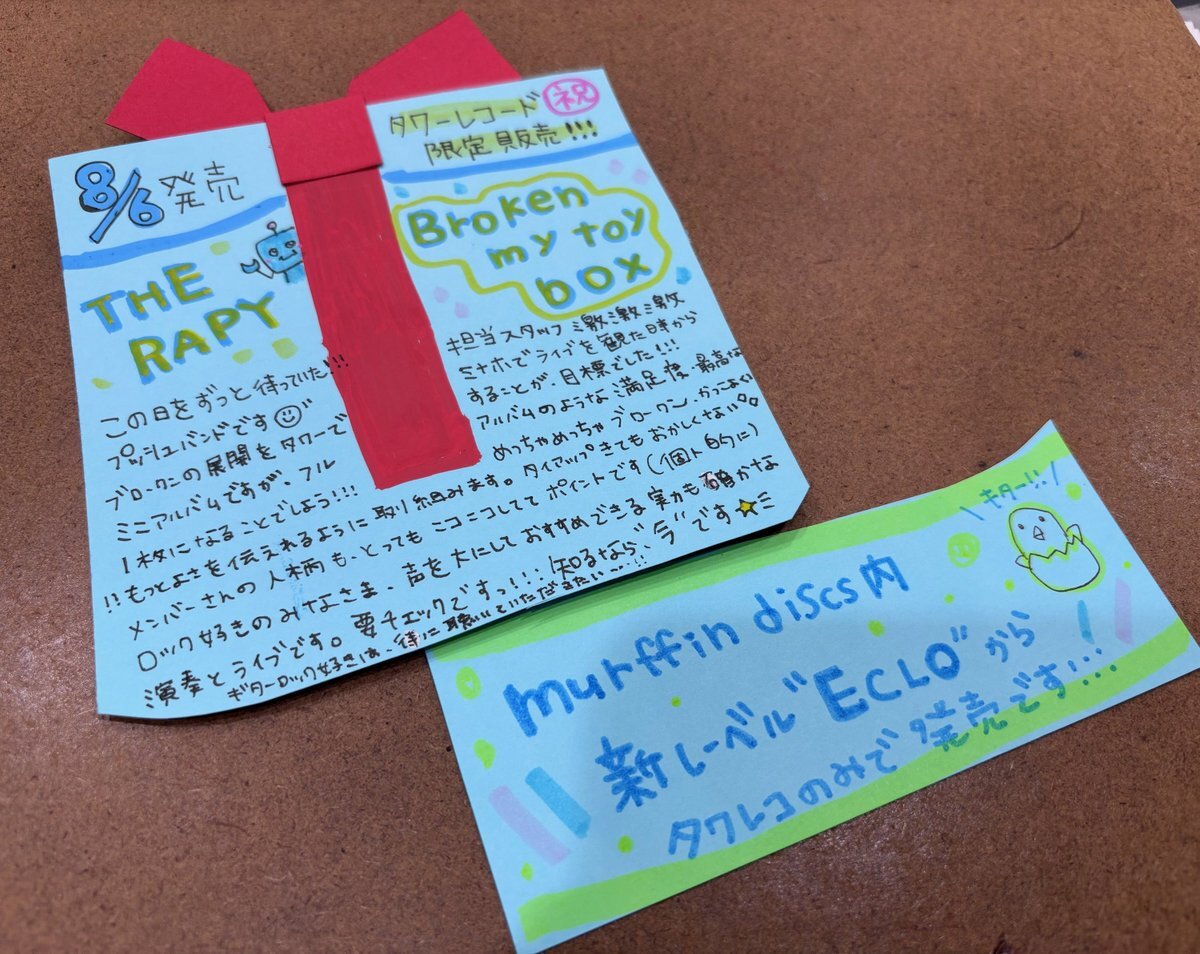 8/6 発売
THE RAPY
タワーレコード ㊗
限定販売!!!
Broken
my toy
box
この日をずっと待っていた!!! 担当スタッフ激激激激
プッシュバンドです☺ ミナホでライブを観た時から
ブロークンの展開をタワーで することが、目標でした!!!
ミニアルバムですが、フル アルバムのような満足度・最高な
1枚になることでしょう!!! めっちゃめっちゃブロークン、かっこよい
!!もっとよさを伝えれるように取り組みます。タイアップきてもおかしくない。
メンバーさんの人柄も、とってもニコニコしててポイントです(個人的に)
ロック好きのみなさま、声を大にしておすすめできる実力も確かな
演奏とライブです。要チェックですっ!!! 知るなら、"今"です
ギターロック好きは、特に聴いていただきたいっ!!
\キター!!/
murffin discs内
新レーベル"ECLO"から
タワレコのみで発売です!!!